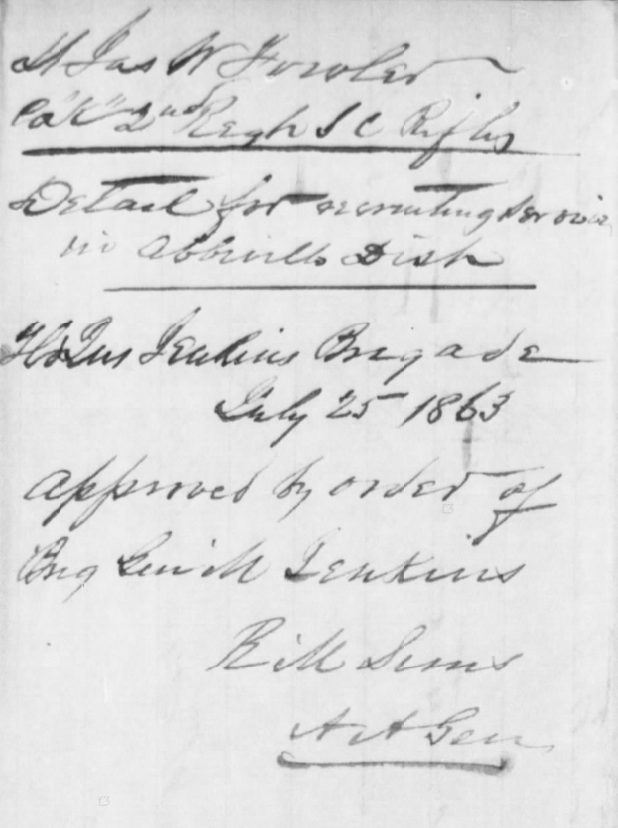 Lt Jas W Fowler
Co "K" 2nd Regt S C Rifles
Detail for recruiting Service
in Abbeville Dist
Hd Qrs Jenkins Brigade
July 25 1863
approved by order of
Brig Gen M Jenkins
R M Sims
A A Gen